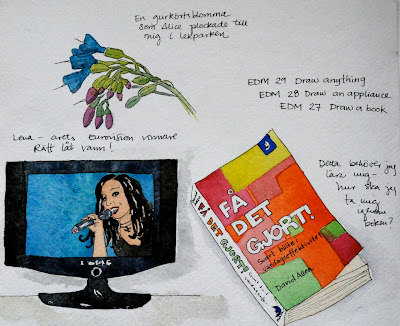 En gurkörtsblomma
som Alice plockade till
mig i lekparken
EDM 29 Draw anything
EDM 28 Draw an appliance
EDM 27 Draw a book
Lena - årets Eurovision vinnare
Rätt låt vann!
FÅ
DET
GJORT!
Svart bälte i
vardagseffektivitet
David Allen
FÅ DET GJORT!
9
Detta behöver jag
lära mig -
hur ska jag
ta mig
igenom
boken?